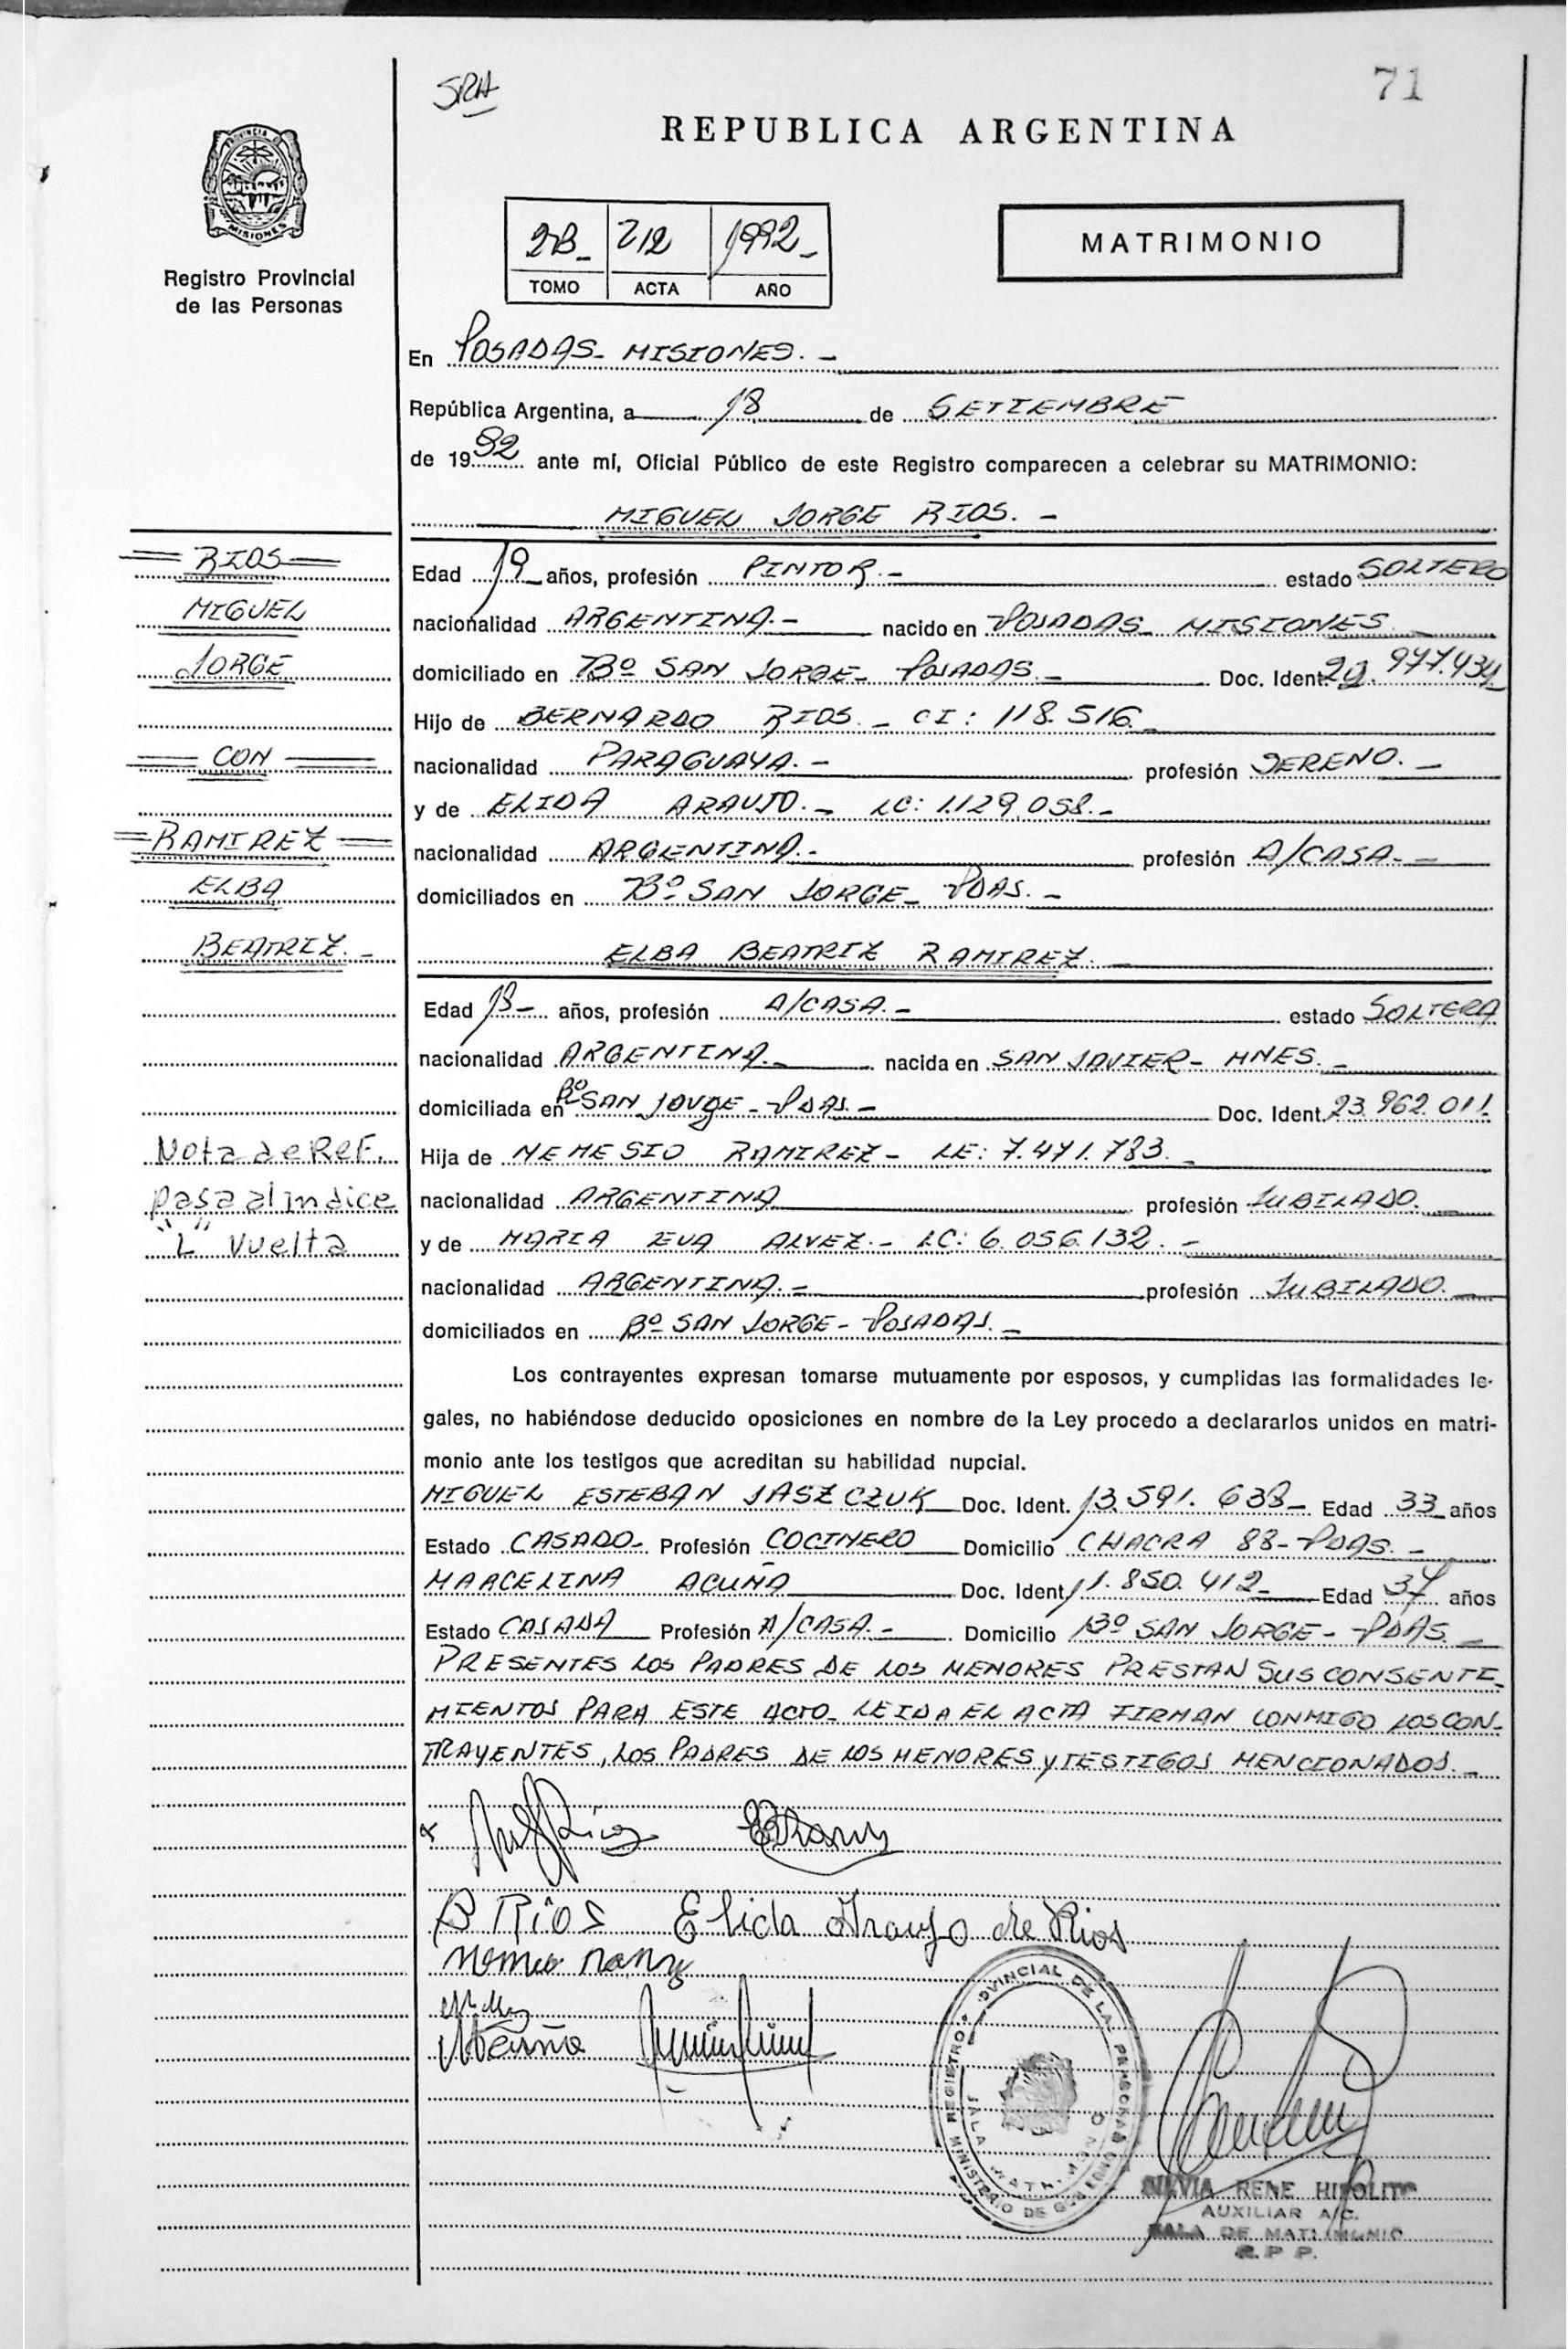 SRH
71
REPUBLICA ARGENTINA
PROVINCIA DE MISIONES
Registro Provincial
de las Personas
2B- 212 1992-
TOMO ACTA AÑO
MATRIMONIO
En POSADAS- MISIONES.-
República Argentina, a 18 de SETIEMBRE
de 1992 ante mí, Oficial Público de este Registro comparecen a celebrar su MATRIMONIO:
MIGUEL JORGE RIOS.-
RIOS
MIGUEL
JORGE
CON
RAMIREZ
ELBA
BEATRIZ.-
Edad 19 años, profesión PINTOR.- estado SOLTERO
nacionalidad ARGENTINA.- nacido en POSADAS- MISIONES
domiciliado en Bº SAN JORGE- POSADAS.- Doc. Ident. 977.434
Hijo de BERNARDO RIOS.- CI: 118.516
nacionalidad PARAGUAYA.- profesión SERENO.-
y de ELIDA ARAUJO.- LC: 1.129.058.-
nacionalidad ARGENTINA.- profesión A/CASA.-
domiciliados en Bº SAN JORGE- PDAS.-
ELBA BEATRIZ RAMIREZ.
Edad años, profesión A/CASA.- estado SOLTERA
nacionalidad ARGENTINA.- nacida en SAN JAVIER- MNES.-
domiciliada en Bº SAN JORGE- PDAS.- Doc. Ident. 23.962.011.
Nota de Ref.
pasa al indice
"L" vuelta
Hija de NEMESIO RAMIREZ- LE: 7.471.783.-
nacionalidad ARGENTINA profesión JUBILADO.
y de MARIA EVA ALVEZ.- LC: 6.056.132.-
nacionalidad ARGENTINA.- profesión JUBILADO.
domiciliados en Bº SAN JORGE- POSADAS.-
Los contrayentes expresan tomarse mutuamente por esposos, y cumplidas las formalidades le-
gales, no habiéndose deducido oposiciones en nombre de la Ley procedo a declararlos unidos en matri-
monio ante los testigos que acreditan su habilidad nupcial.
MIGUEL ESTEBAN JASZCZUK Doc. Ident. 13.591.638- Edad 33 años
Estado CASADO- Profesión COCINERO Domicilio CHACRA 88- PDAS.-
MARCELINA ACUÑA Doc. Ident. 11.850.412- Edad 37 años
Estado CASADA Profesión A/CASA.- Domicilio Bº SAN JORGE- PDAS.-
PRESENTES LOS PADRES DE LOS MENORES PRESTAN SUS CONSENTI-
MIENTOS PARA ESTE ACTO- LEIDA EL ACTA FIRMAN CONMIGO LOS CON-
TRAYENTES, LOS PADRES DE LOS MENORES y TESTIGOS MENCIONADOS.-
B Rios Elida Araujo de Rios
MAcuña
REGISTRO PROVINCIAL DE LAS PERSONAS
MINISTERIO DE GOBIERNO
SALA MATRIMONIO
SILVIA RENE HIPOLITO
AUXILIAR A/C.
SALA DE MATRIMONIO
R.P.P.